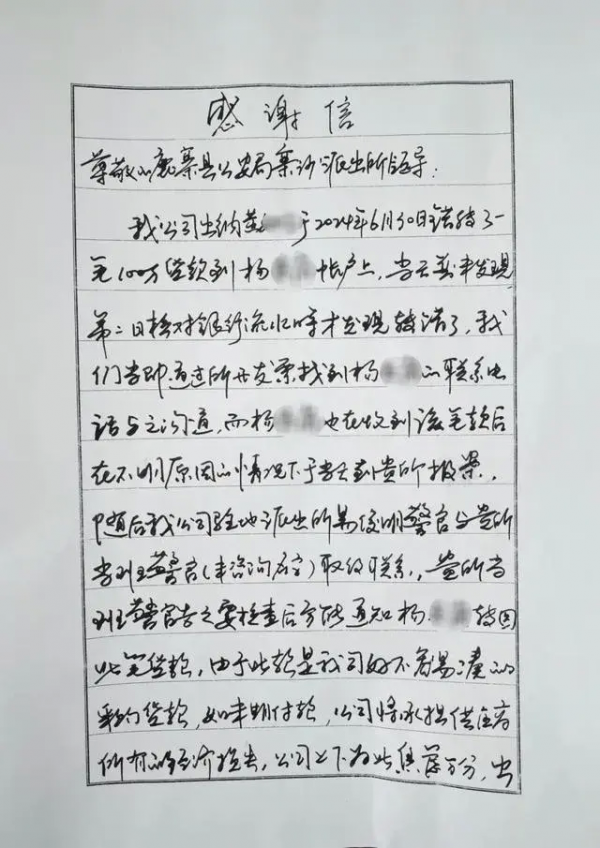 感谢信
尊敬的鹿寨县公安局寨沙派出所领导：
我公司出纳黄 于2024年6月30日错转了一
笔100万货款到杨 帐户上，当天并未发现
第二日核对银行流水时才发现转错了，我
们当即通过所开发票找到杨 的联系电
话与之沟通，而杨 也在收到该笔款后
在不明原因的情况下于当天到贵所报案，
随后我公司驻地派出所 俊明警官与贵所
当班警官（未咨询名字）取得联系，贵所当
班警官告之要检查后方能通知杨 转回
此笔货款，由于此款是我司好不容易凑的
采购货款，如未期付款，公司将承担供应商
所有的经济损失，公司上下为此焦虑万分，出